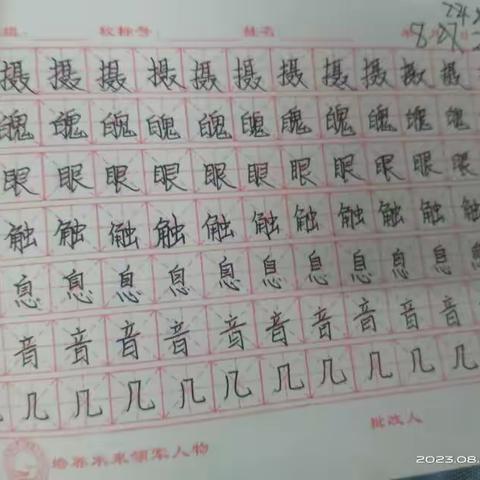 姓名
8.27
摄摄摄摄摄摄摄摄摄摄摄
魄魄魄魄魄魄魄魄魄魄魄
眼眼眼眼眼眼眼眼眼眼眼
触触触触触触触触触触触
息息息息息息息息息息息
音音音音音音音音音音
几几几几几几几几几几
批改人
培养未来领军人物
2023.08